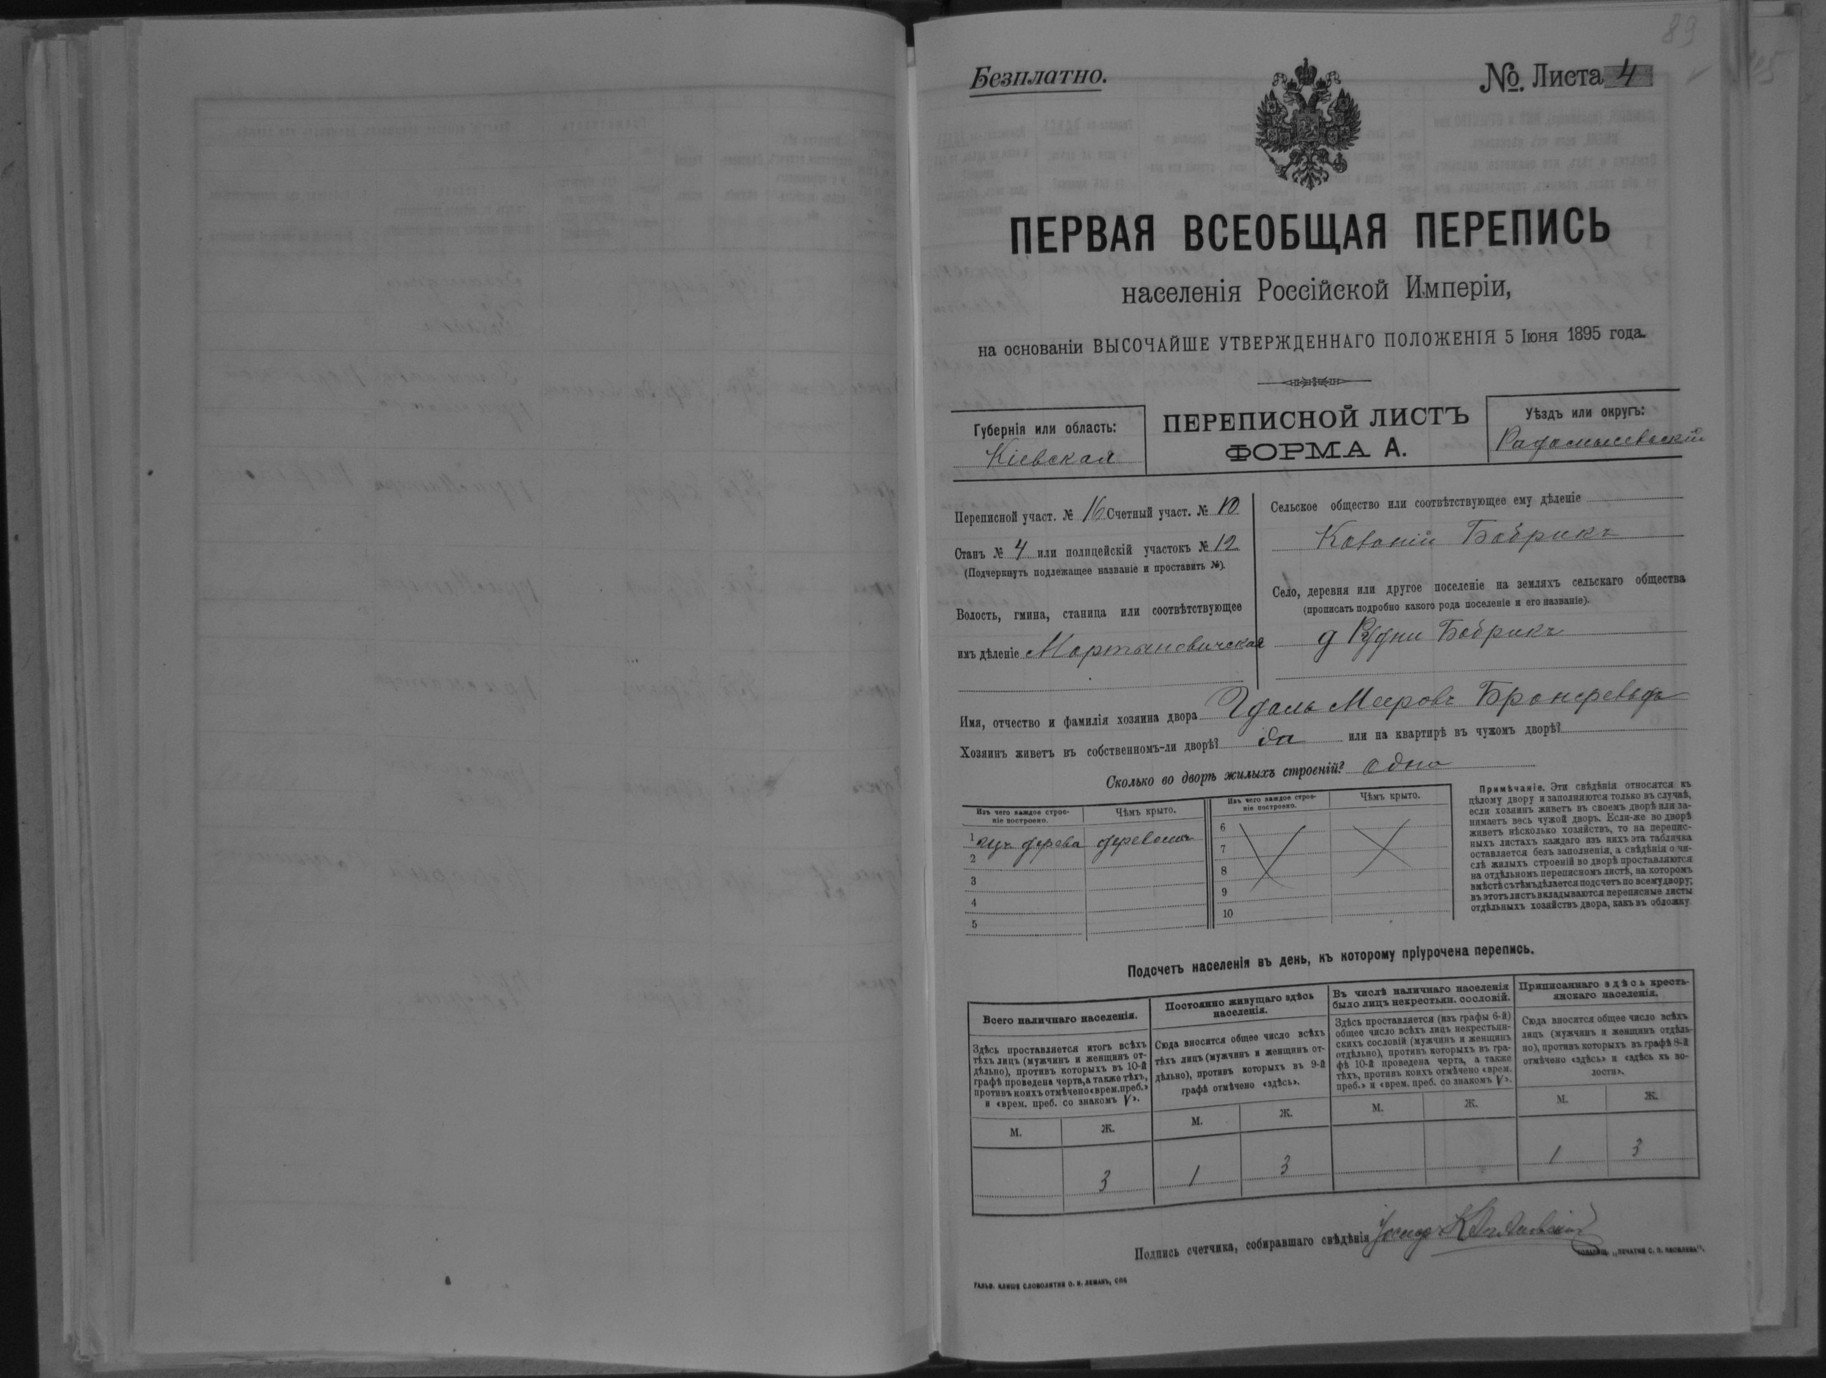 89
Безплатно.
№. Листа 4
ПЕРВАЯ ВСЕОБЩАЯ ПЕРЕПИСЬ
населенія Россійской Имперіи,
на основаніи ВЫСОЧАЙШЕ УТВЕРЖДЕННАГО ПОЛОЖЕНІЯ 5 Іюня 1895 года.
Губернія или область:
Кіевская
ПЕРЕПИСНОЙ ЛИСТЪ
ФОРМА А.
Уѣздъ или округъ:
Радомысльскій
Переписной участ. № 16 Счетный участ. № 10
Станъ № 4 или полицейскій участокъ № 12
(Подчеркнуть подлежащее названіе и проставить №).
Волость, гмина, станица или соотвѣтствующее
имъ дѣленіе Мартыновичская
Сельское общество или соотвѣтствующее ему дѣленіе
Бобрикъ
Село, деревня или другое поселеніе на земляхъ сельскаго общества
(прописать подробно какого рода поселеніе и его названіе).
д Рудни Бобрикъ
Имя, отчество и фамилія хозяина двора Гдаль Мееровъ
Хозяинъ живетъ въ собственномъ-ли дворѣ? да или на квартирѣ въ чужомъ дворѣ?
Сколько во дворѣ жилыхъ строеній? одно
Изъ чего каждое строе-
ніе построено.
Чѣмъ крыто.
Изъ чего каждое строе-
ніе построено.
Чѣмъ крыто.
1 изъ дерева деревомъ
2
3
4
5
6
7
8
9
10
Примѣчаніе. Эти свѣдѣнія относятся къ
цѣлому двору и заполняются только въ случаѣ,
если хозяинъ живетъ въ своемъ дворѣ или за-
нимаетъ весь чужой дворъ. Если-же во дворѣ
живетъ нѣсколько хозяйствъ, то на перепис-
ныхъ листахъ каждаго изъ нихъ эта табличка
оставляется безъ заполненія, а свѣдѣнія о чи-
слѣ жилыхъ строеній во дворѣ проставляются
на отдѣльномъ переписномъ листѣ, на которомъ
вмѣстѣ съ тѣмъ дѣлается подсчетъ по всему двору;
въ этотъ листъ вкладываются переписные листы
отдѣльныхъ хозяйствъ двора, какъ въ обложку.
Подсчетъ населенія въ день, къ которому пріурочена перепись.
Всего наличнаго населенія.
Здѣсь проставляется итогъ всѣхъ
тѣхъ лицъ (мужчинъ и женщинъ от-
дѣльно), противъ которыхъ въ 10-й
графѣ проведена черта, а также тѣхъ,
противъ коихъ отмѣчено «врем. преб.»
и «врем. преб. со знакомъ V».
М. Ж.
3
Постоянно живущаго здѣсь
населенія.
Сюда вносится общее число всѣхъ
тѣхъ лицъ (мужчинъ и женщинъ от-
дѣльно), противъ которыхъ въ 9-й
графѣ отмѣчено «здѣсь».
М. Ж.
1 3
Въ числѣ наличнаго населенія
было лицъ некрестьян. сословій.
Здѣсь проставляется (изъ графы 6-й)
общее число всѣхъ лицъ некрестьян-
скихъ сословій (мужчинъ и женщинъ
отдѣльно), противъ которыхъ въ гра-
фѣ 10-й проведена черта, а также
тѣхъ, противъ коихъ отмѣчено «врем.
преб.» и «врем. преб. со знакомъ V».
М. Ж.
Приписаннаго здѣсь кресть-
янскаго населенія.
Сюда вносится общее число всѣхъ
лицъ (мужчинъ и женщинъ отдѣль-
но), противъ которыхъ въ графѣ 8-й
отмѣчено «здѣсь» и «здѣсь въ во-
лости».
М. Ж.
1 3
Подпись счетчика, собиравшаго свѣдѣнія